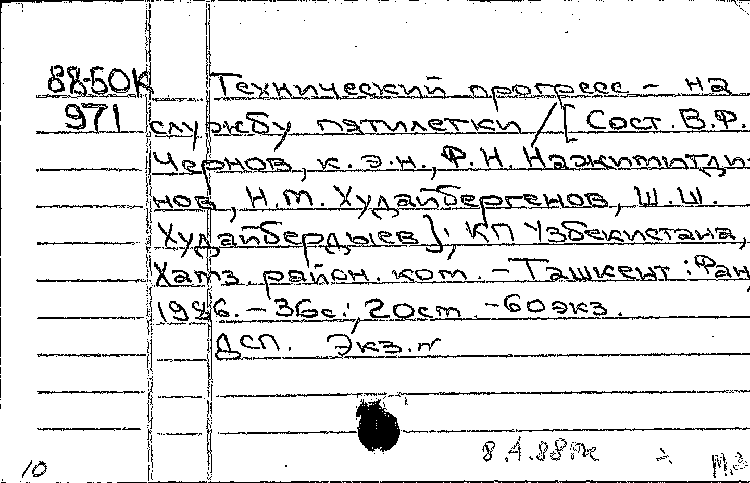 88-50К Технический прогресс – на
971 службу пятилетки / [Сост. В.Ф.
Чернов, к.э.н., Ф.Н. Нажимитди-
нов, Н.Т. Худайбергенов, Ш.Ш.
Худайбердыев]; КП Узбекистана,
Хатз. район. ком. – Ташкент : Фан,
1986. – 36с.; 20см. – 60экз.
ДСП. Экз. №
8.4.88
10